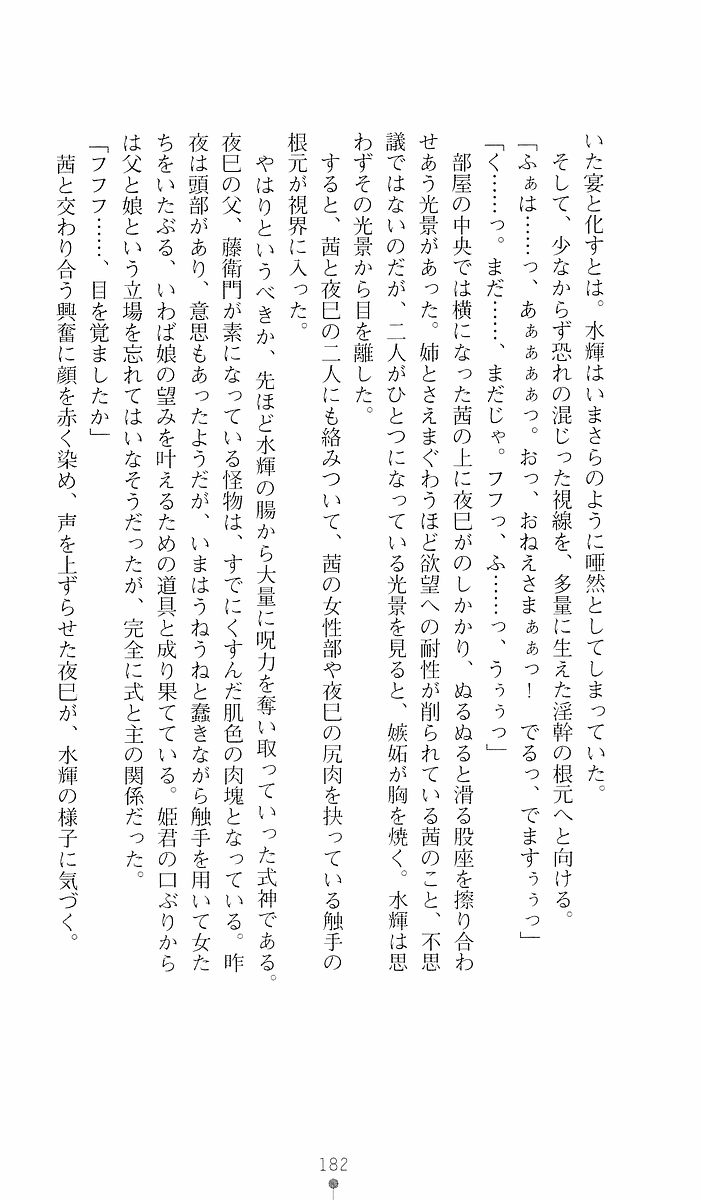 いた宴と化すとは。水輝はいまさらのように唖然としてしまっていた。
　そして、少なからず恐れの混じった視線を、多量に生えた淫幹の根元へと向ける。
「ふぁは……っ、あぁぁぁぁっ。おっ、おねえさまぁぁっ！　でるっ、でますぅぅっ」
「く……っ。まだ……、まだじゃ。フフっ、ふ……っ、うぅぅっ」
　部屋の中央では横になった茜の上に夜巳がのしかかり、ぬるぬると滑る股座を擦り合わ
せあう光景があった。姉とさえまぐわうほど欲望への耐性が削られている茜のこと、不思
議ではないのだが、二人がひとつになっている光景を見ると、嫉妬が胸を焼く。水輝は思
わずその光景から目を離した。
　すると、茜と夜巳の二人にも絡みついて、茜の女性部や夜巳の尻肉を抉っている触手の
根元が視界に入った。
　やはりというべきか、先ほど水輝の腸から大量に呪力を奪い取っていった式神である。
夜巳の父、藤衛門が素になっている怪物は、すでにくすんだ肌色の肉塊となっている。昨
夜は頭部があり、意思もあったようだが、いまはうねうねと蠢きながら触手を用いて女た
ちをいたぶる、いわば娘の望みを叶えるための道具と成り果てている。姫君の口ぶりから
は父と娘という立場を忘れてはいなそうだったが、完全に式と主の関係だった。
「フフフ……、目を覚ましたか」
　茜と交わり合う興奮に顔を赤く染め、声を上ずらせた夜巳が、水輝の様子に気づく。
182